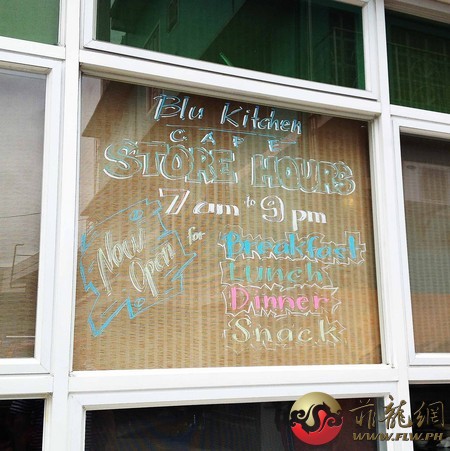 Blu Kitchen
CAFE
STORE HOURS
7 am to 9 pm
Now Open
for
Breakfast
Lunch
Dinner
Snack
菲龍網
WWW.FLW.PH